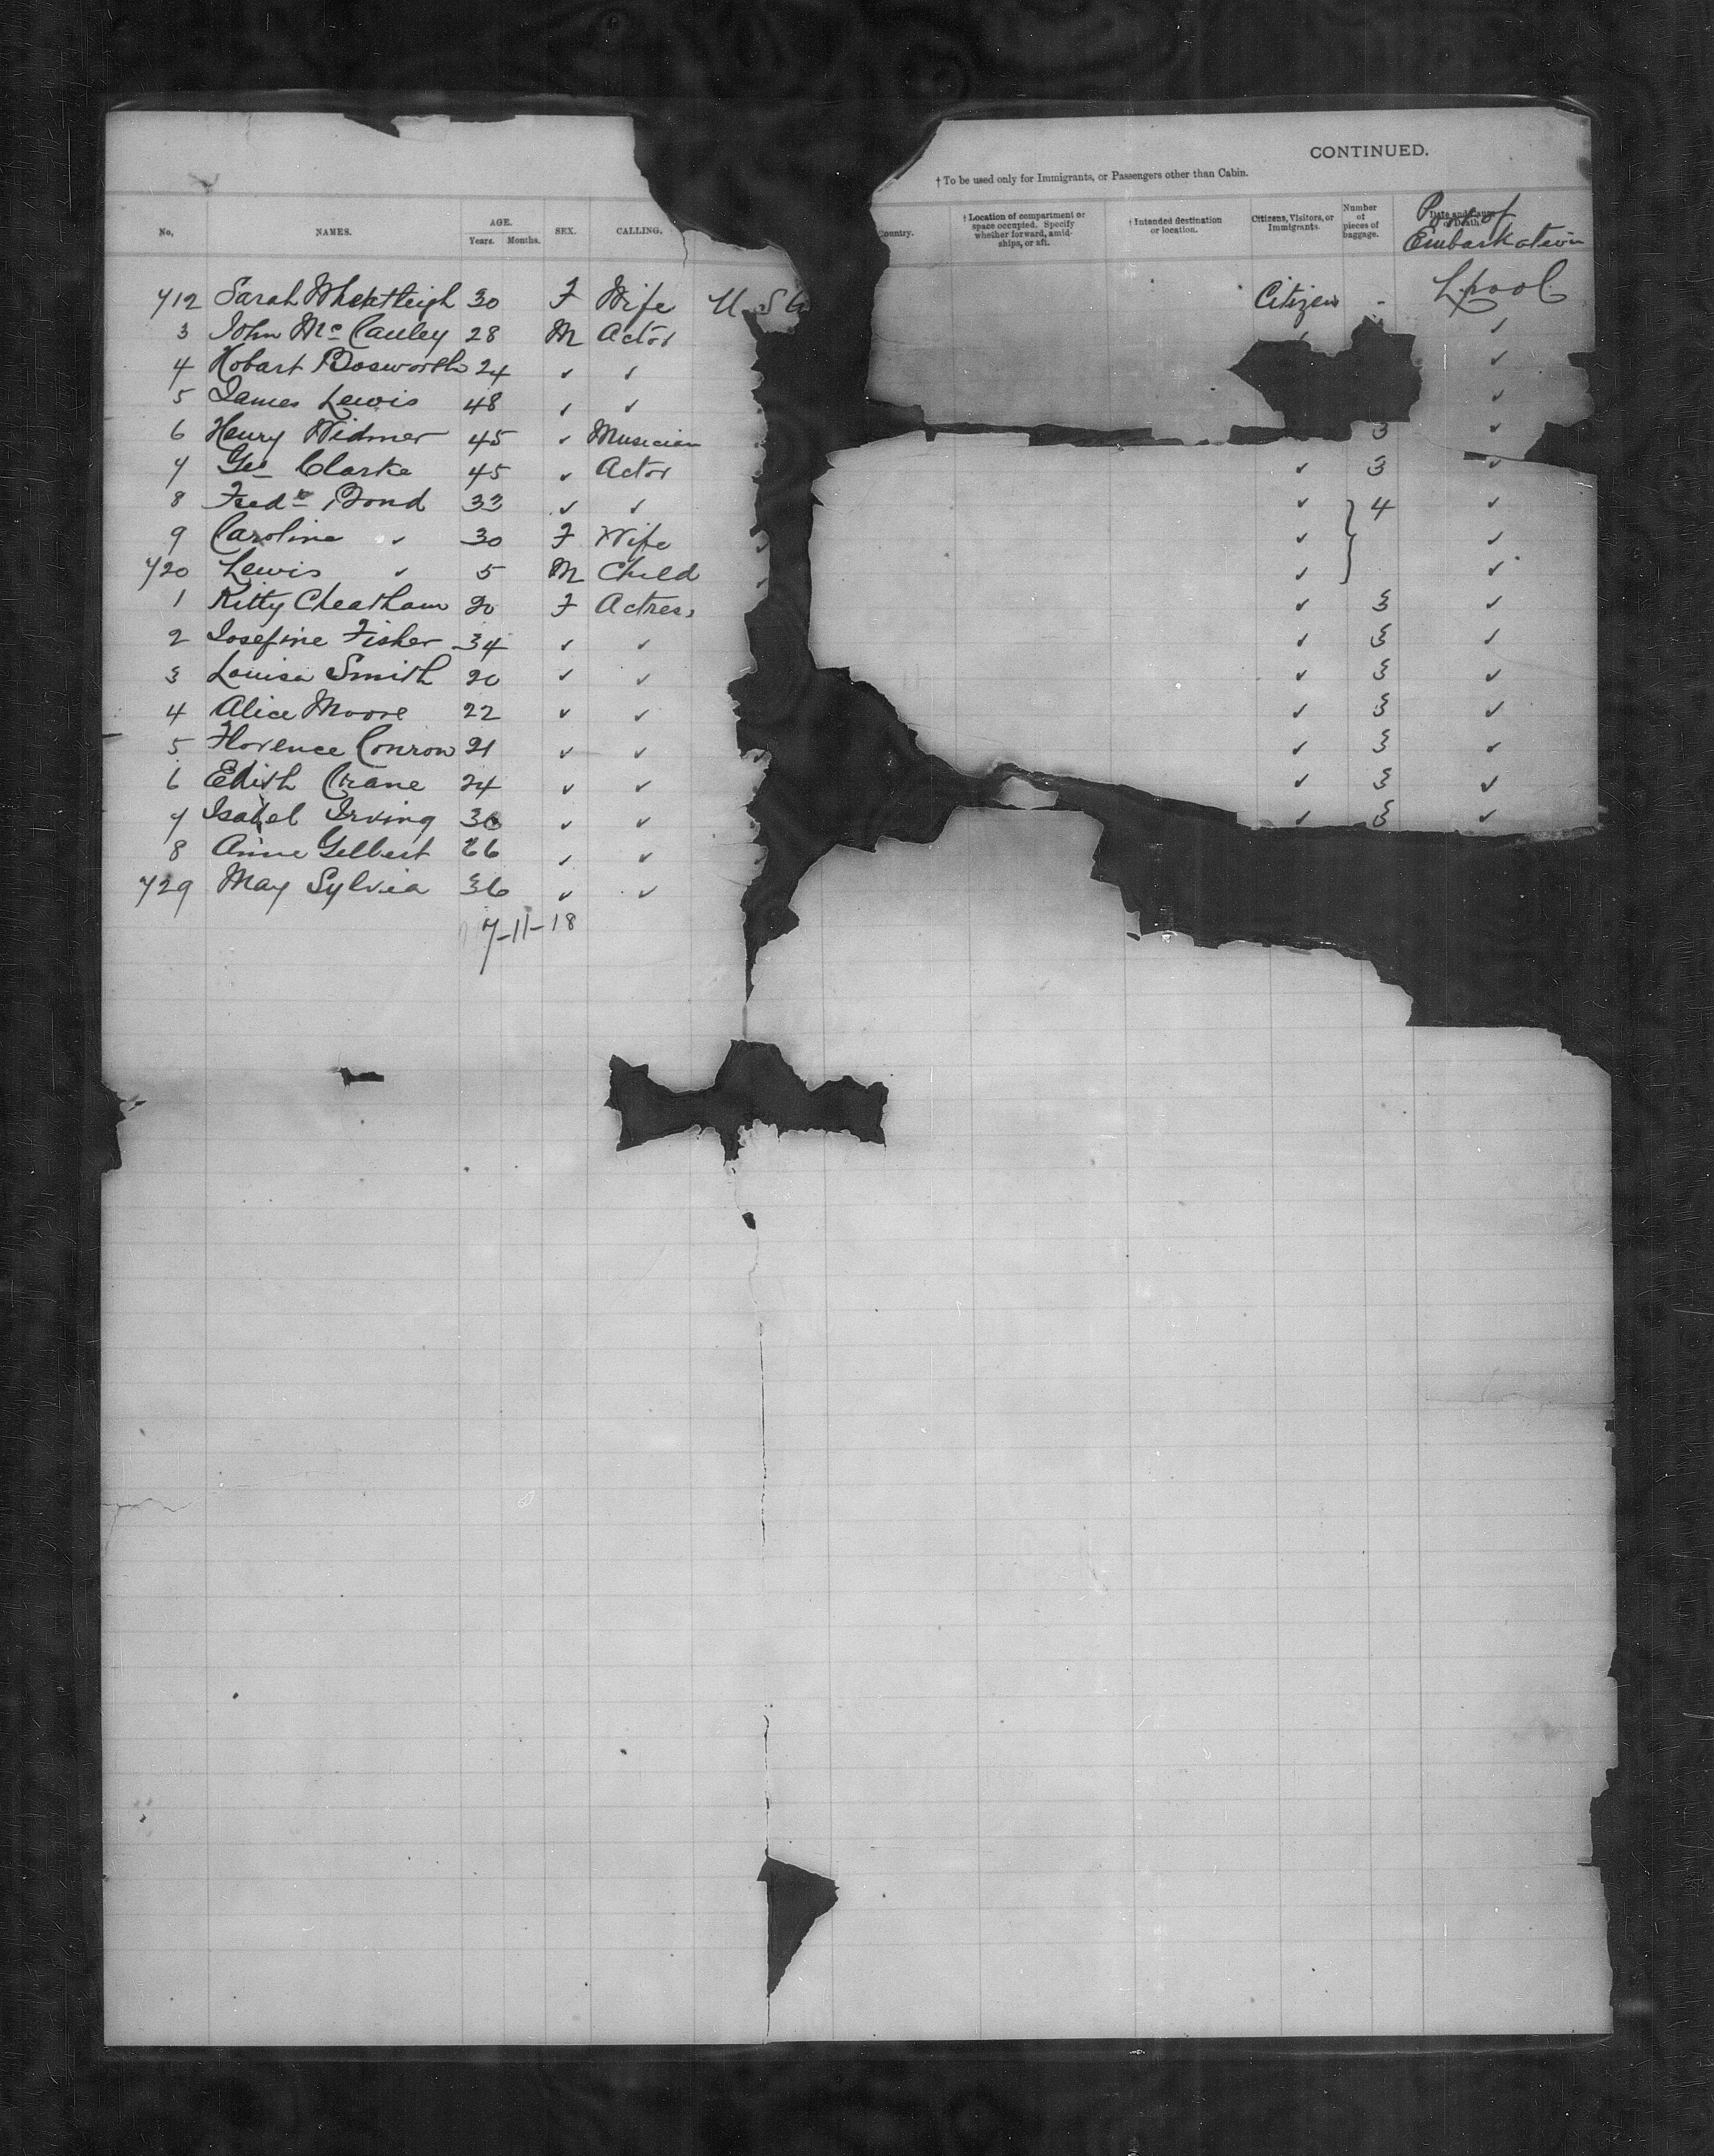 CONTINUED.
† To be used only for Immigrants, or Passengers other than Cabin.
No. NAMES. AGE. Years. Months. SEX. CALLING. Country. † Location of compartment or space occupied. Specify whether forward, amidships, or aft. † Intended destination or location. Citizens, Visitors, or Immigrants. Number of pieces of baggage. Port of Embarkation
712 Sarah Wheatleigh 30 F Wife U S Citizen - Lpool
3 John Mc Cauley 28 M Actor ✓
4 Hobart Bosworth 24 ✓ ✓ ✓
5 James Lewis 48 ✓ ✓ ✓
6 Henry Widmer 45 ✓ Musician 3 ✓
7 Geo Clarke 45 ✓ Actor ✓ 3 ✓
8 Fredk Bond 33 ✓ ✓ ✓ 4 ✓
9 Caroline ✓ 30 F Wife ✓ ✓ ✓
720 Lewis ✓ 5 M Child ✓ ✓ ✓
1 Kitty Cheatham 20 F Actress ✓ 3 ✓
2 Josefine Fisher 34 ✓ ✓ ✓ 3 ✓
3 Louisa Smith 20 ✓ ✓ ✓ 3 ✓
4 Alice Moore 22 ✓ ✓ ✓ 3 ✓
5 Florence Conron 21 ✓ ✓ ✓ ✓ 3 ✓
6 Edith Crane 24 ✓ ✓ ✓ 3 ✓
7 Isabel Irving 30 ✓ ✓ ✓ 3 ✓
8 Anne Gilbert 66 ✓ ✓
729 May Sylvia 36 ✓ ✓
7-11-18